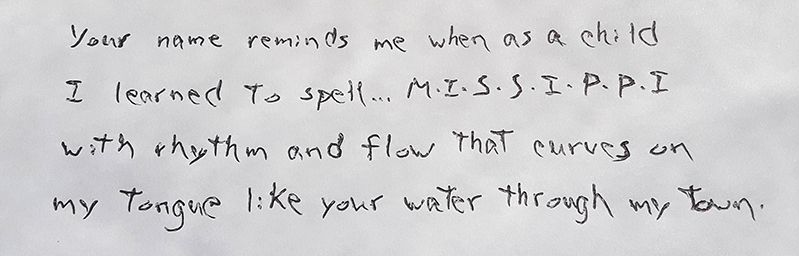 Your name reminds me when as a child
I learned to spell... M.I.S.S.I.P.P.I
with rhythm and flow that curves on
my tongue like your water through my town.